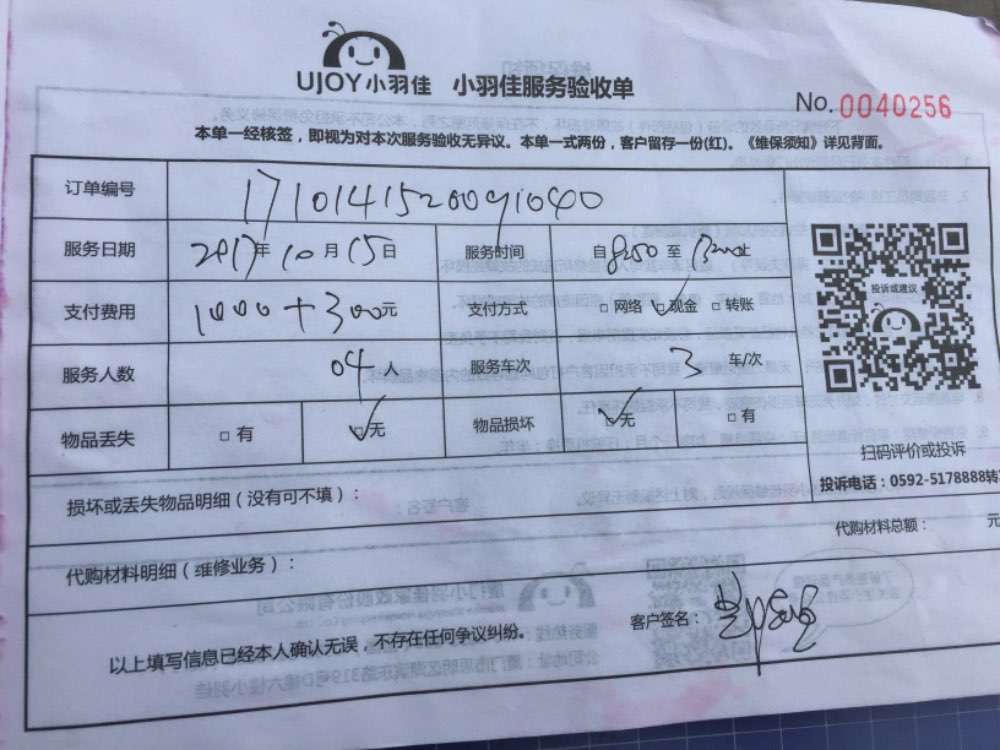 UJOY小羽佳 小羽佳服务验收单
No. 0040256
本单一经核签，即视为对本次服务验收无异议。本单一式两份，客户留存一份(红)。《维保须知》详见背面。
订单编号 1710141520091040
服务日期 2017年10月15日 服务时间 自8:50至
支付费用 1000+300元 支付方式 □网络 ☑现金 □转账
投诉或建议
服务人数 04人 服务车次 3 车/次
物品丢失 □有 ☑无 物品损坏 ☑无 □有
扫码评价或投诉
损坏或丢失物品明细（没有可不填）：
投诉电话：0592-5178888转
代购材料总额： 元
代购材料明细（维修业务）：
客户签名：
以上填写信息已经本人确认无误，不存在任何争议纠纷。